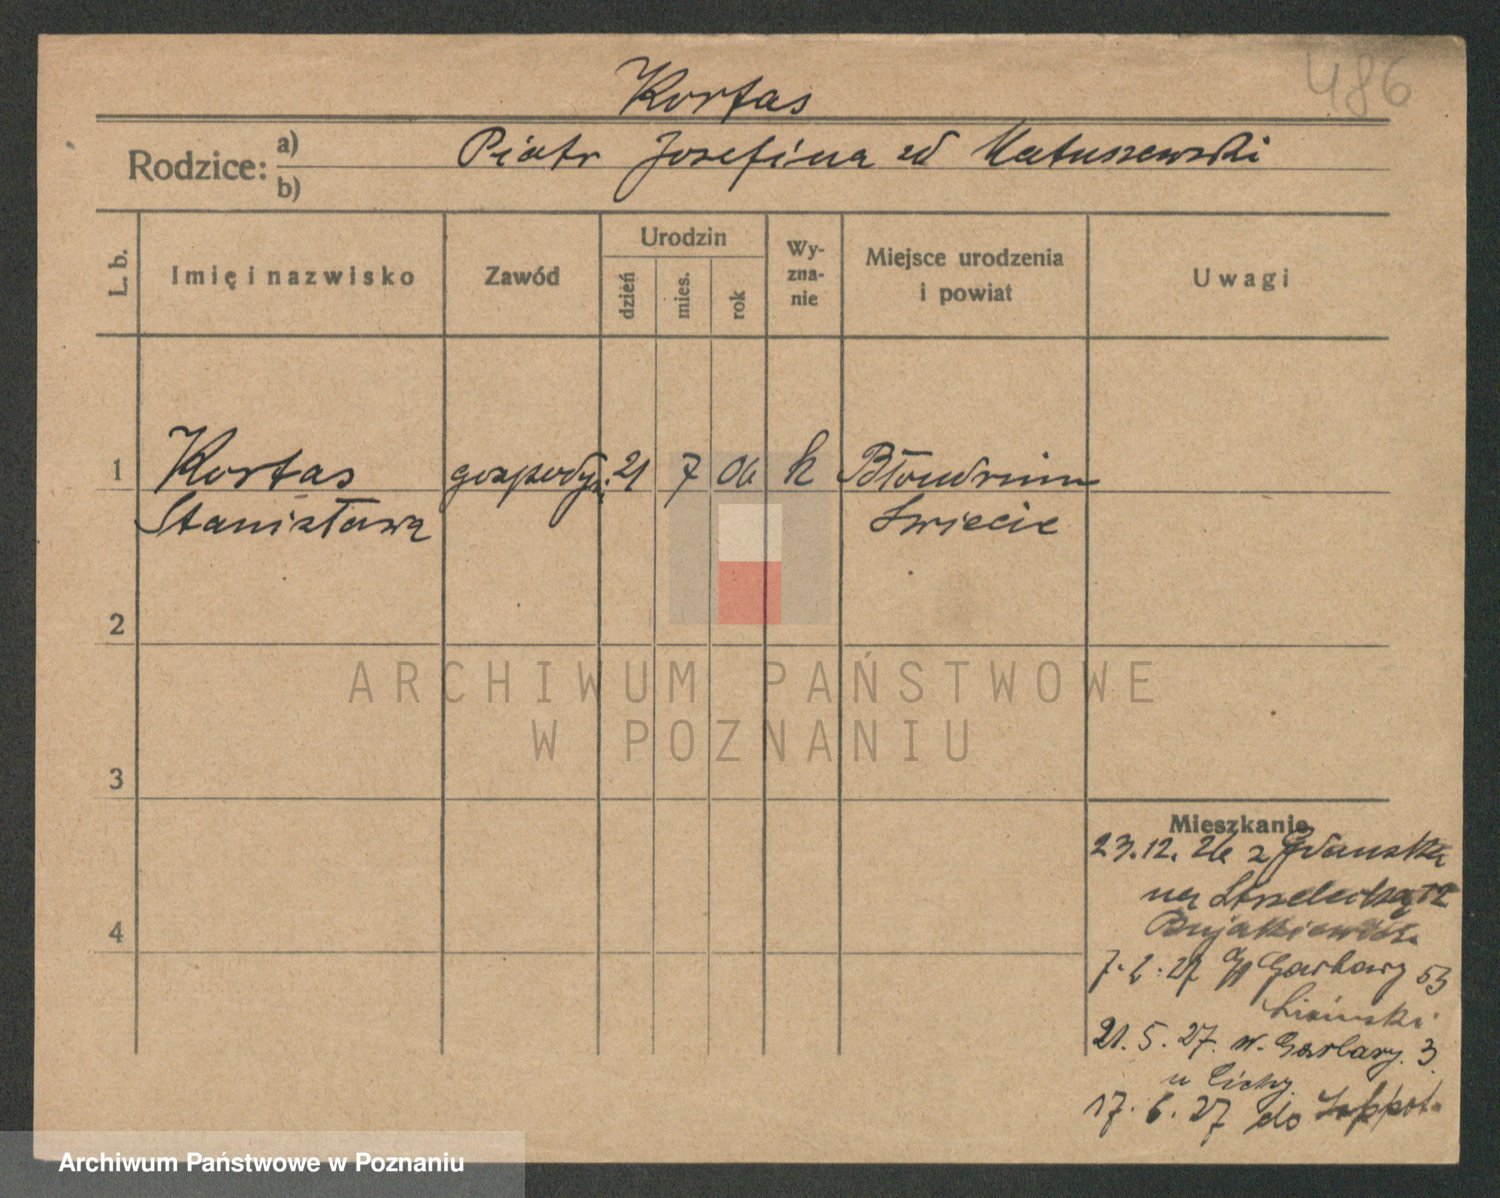 486
Kortas
Rodzice: a) Piotr Josefina zd Matuszewski
b)
L. b.
Imię i nazwisko
Zawód
Urodzin
dzień
mies.
rok
Wy-
zna-
nie
Miejsce urodzenia
i powiat
Uwagi
1 Kortas gospodyn. 21 7 06 k
Stanisława Świecie
2
3
4
Mieszkanie
23.12.26 z Gdańska
na Strzelecką 12
7.2.27 Garbary 53
21.5.27. w. Garbary. 3
u Cichy.
17.6.27 do Zoppot.
ARCHIWUM PAŃSTWOWE
W POZNANIU
Archiwum Państwowe w Poznaniu